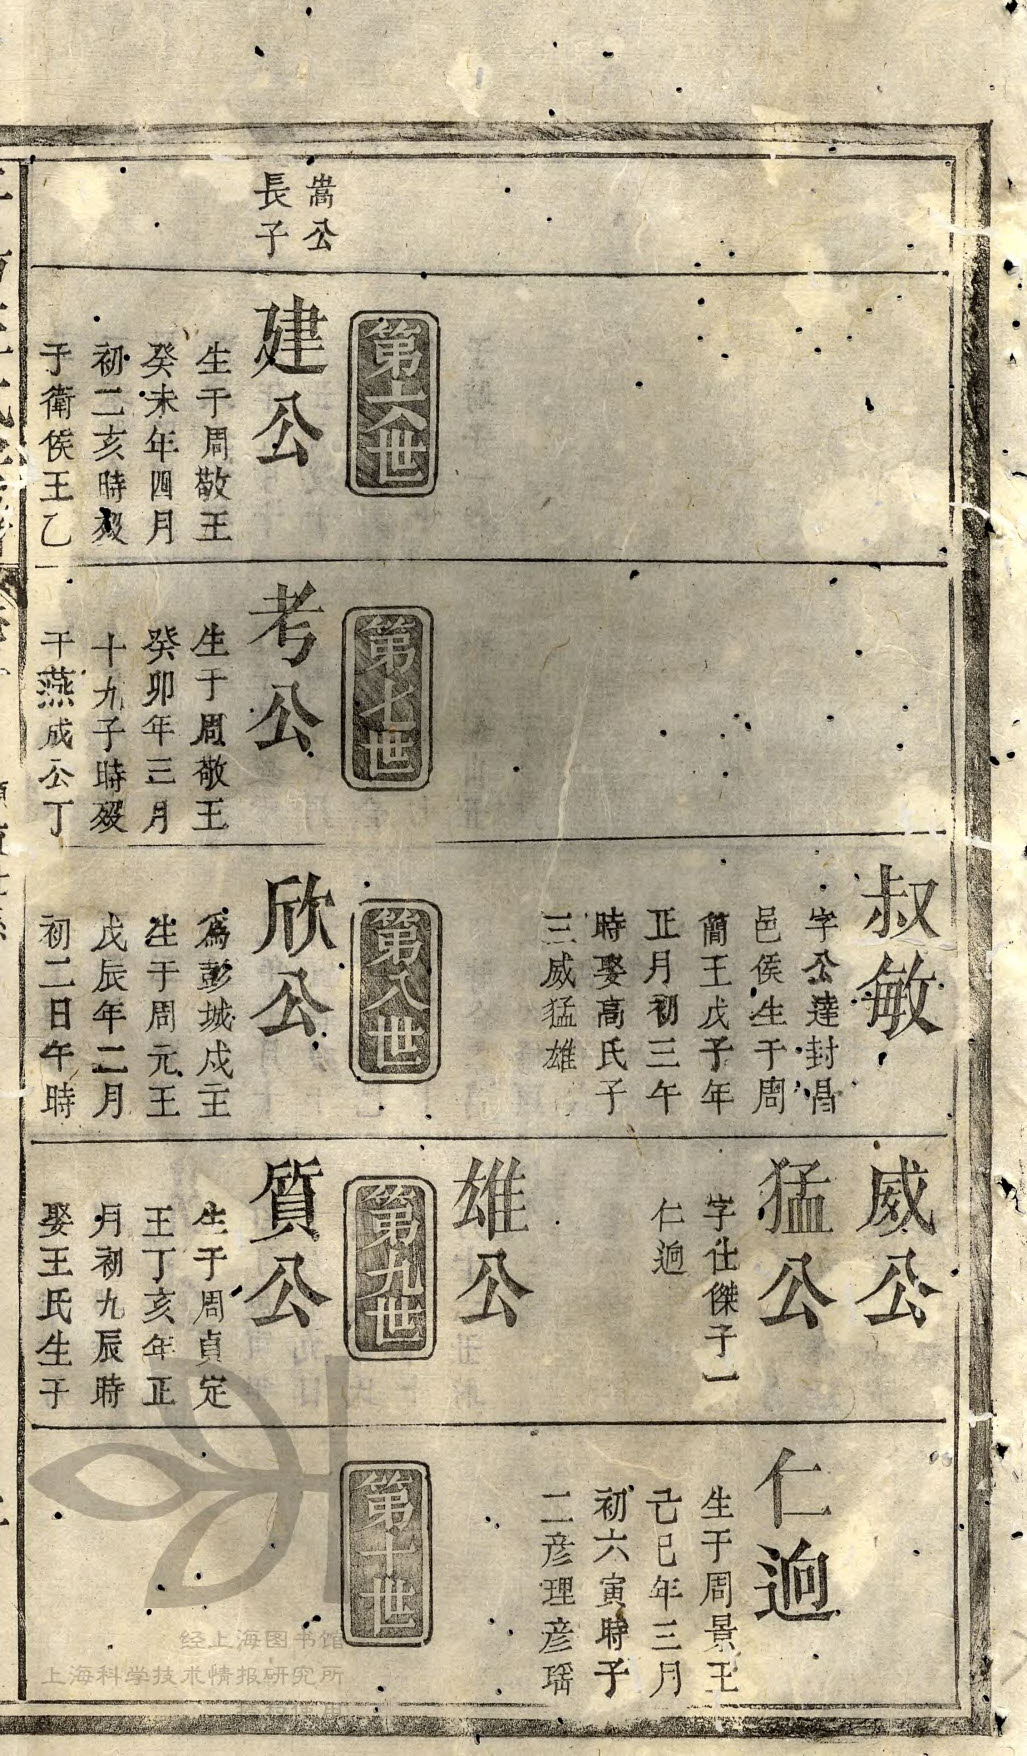 叔敏
字公達封昌
邑侯生于周
簡王戊子年
正月初三午
時娶高氏子
三威猛雄
威公
猛公
字仕傑子一
仁逈
雄公
仁逈
生于周景王
己巳年三月
初六寅時子
二彦理彦瑶
嵩公
長子
第六世
建公
生于周敬王
癸未年四月
初二亥時歿
于衛侯王乙
第七世
考公
生于周敬王
癸卯年三月
十九子時歿
于燕成公丁
第八世
欣公
為彭城戍主
生于周元王
戊辰年二月
初二日午時
第九世
質公
生于周貞定
王丁亥年正
月初九辰時
娶王氏生子
第十世
经上海图书馆
上海科学技术情报研究所